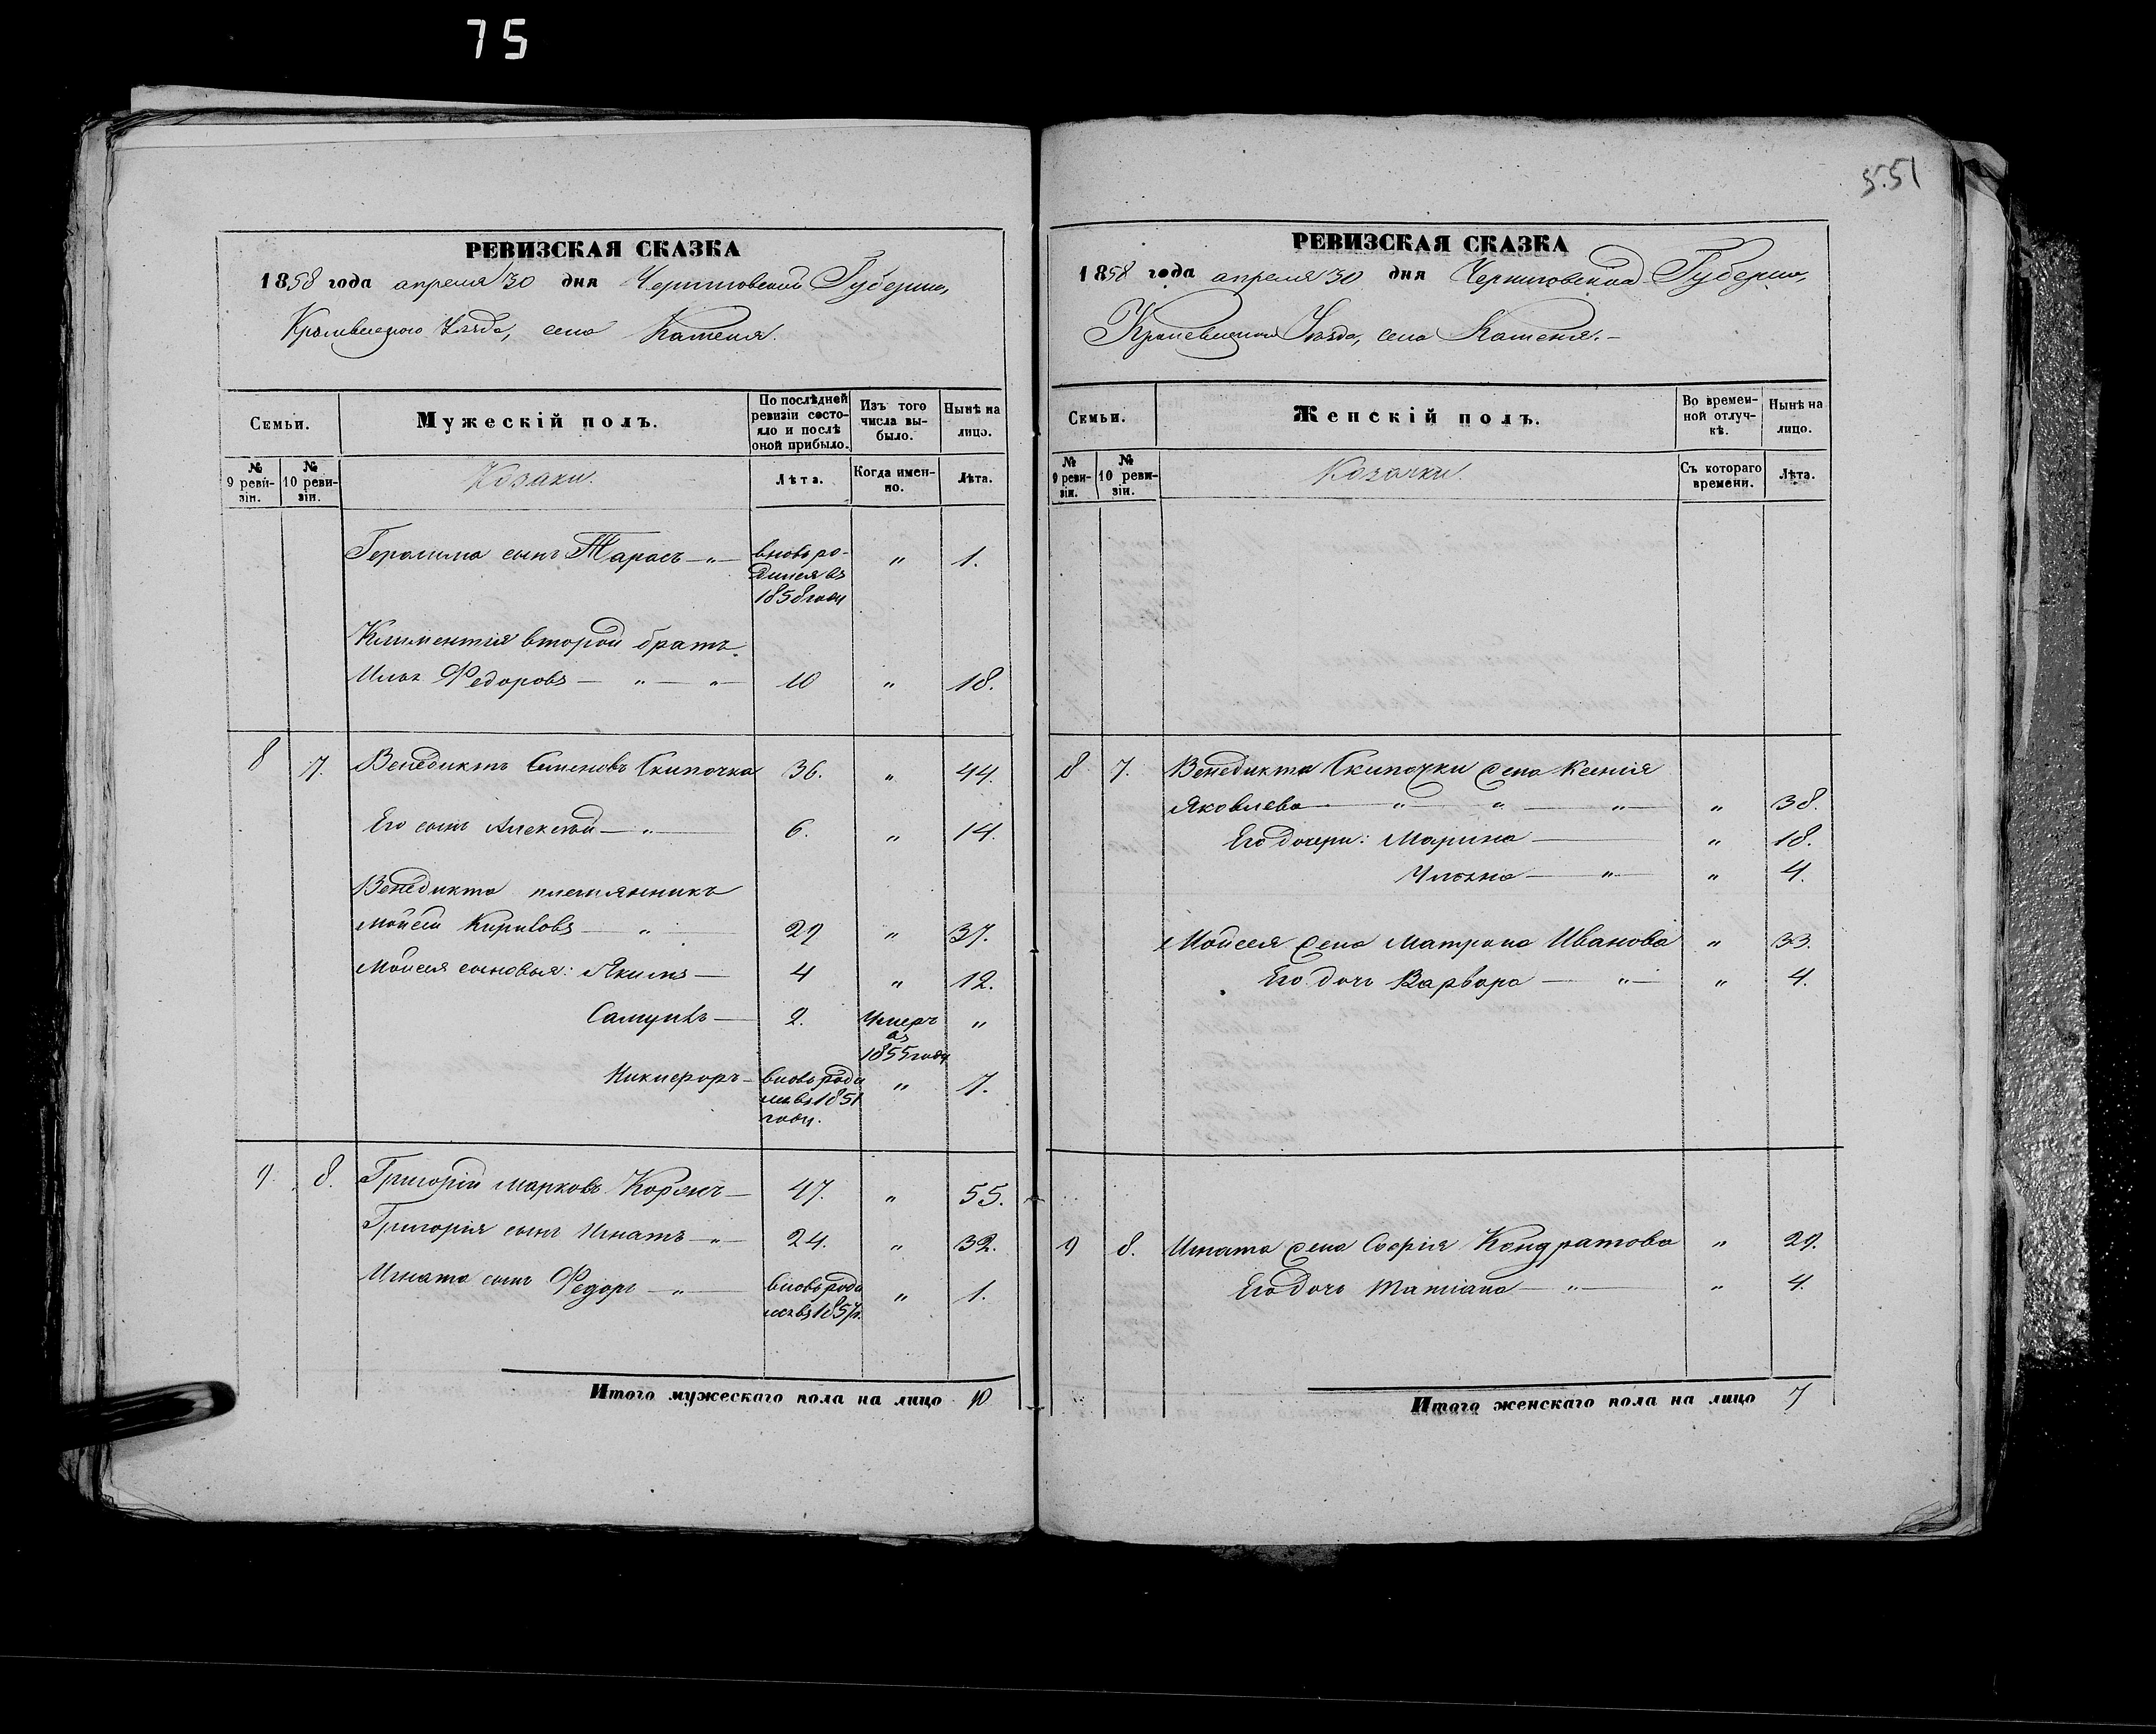 75
5.51
РЕВИЗСКАЯ СКАЗКА
1858 года апреля 30 дня Черниговской Губернии,
Кролевецкого Уѣзда, села Каменя.
Семьи.
Мужескій полъ.
По послѣдней
ревизіи состо-
яло и послѣ
оной прибыло.
Изъ того
числа вы-
было.
Нынѣ на
лицо.
№
9 реви-
зіи.
№
10 реви-
зіи.
Козаки.
Лѣта.
Когда имен-
но.
Лѣта.
Герасима сынъ Тарасъ — „ — вновь ро- „ 1.
дился въ
1858 году
Климентія второй братъ
Илья Федоровъ — „ — „ 10 „ 18.
8 7. Венедиктъ Семеновъ Скипочка 36. „ 44.
Его сынъ Алексѣй — „ — 6. „ 14.
Венедикта племянникъ
Мойсей Кириловъ — „ — 29 „ 37.
Мойсея сыновья: Якимъ — 4 „ 12.
Самуилъ — 2. Умеръ „
въ
1855 году
Никифоръ — вновь роди „ 7.
лся въ 1851
году.
9. 8. Григорій Марковъ — 47. „ 55.
Григорія сынъ Игнатъ — „ 24. „ 32.
Игната сынъ Федоръ — „ — вновь роди „ 1.
лся въ 1857 г.
Итого мужескаго пола на лицо 10
РЕВИЗСКАЯ СКАЗКА
1858 года апреля 30 дня Черниговской Губернии,
Кролевецкого Уѣзда, села Каменя. —
Семьи.
Женскій полъ.
Во времен-
ной отлуч-
кѣ.
Нынѣ на
лицо.
№
9 реви-
зіи.
№
10 реви-
зіи.
Козачки.
Съ котораго
времени.
Лѣта.
8 7. Венедикта Скипочки жена Ксенія
Яковлева — „ — „ — „ — „ 38.
Его дочери: Марина — „ 18.
Ульяна — „ — „ 4.
Мойсея жена Матрона Иванова „ 33.
Его дочь Варвара — „ — „ 4.
9 8. Игната жена Софія Кондратова „ 29.
Его дочь Татіана — „ — „ 4.
Итого женскаго пола на лицо 7